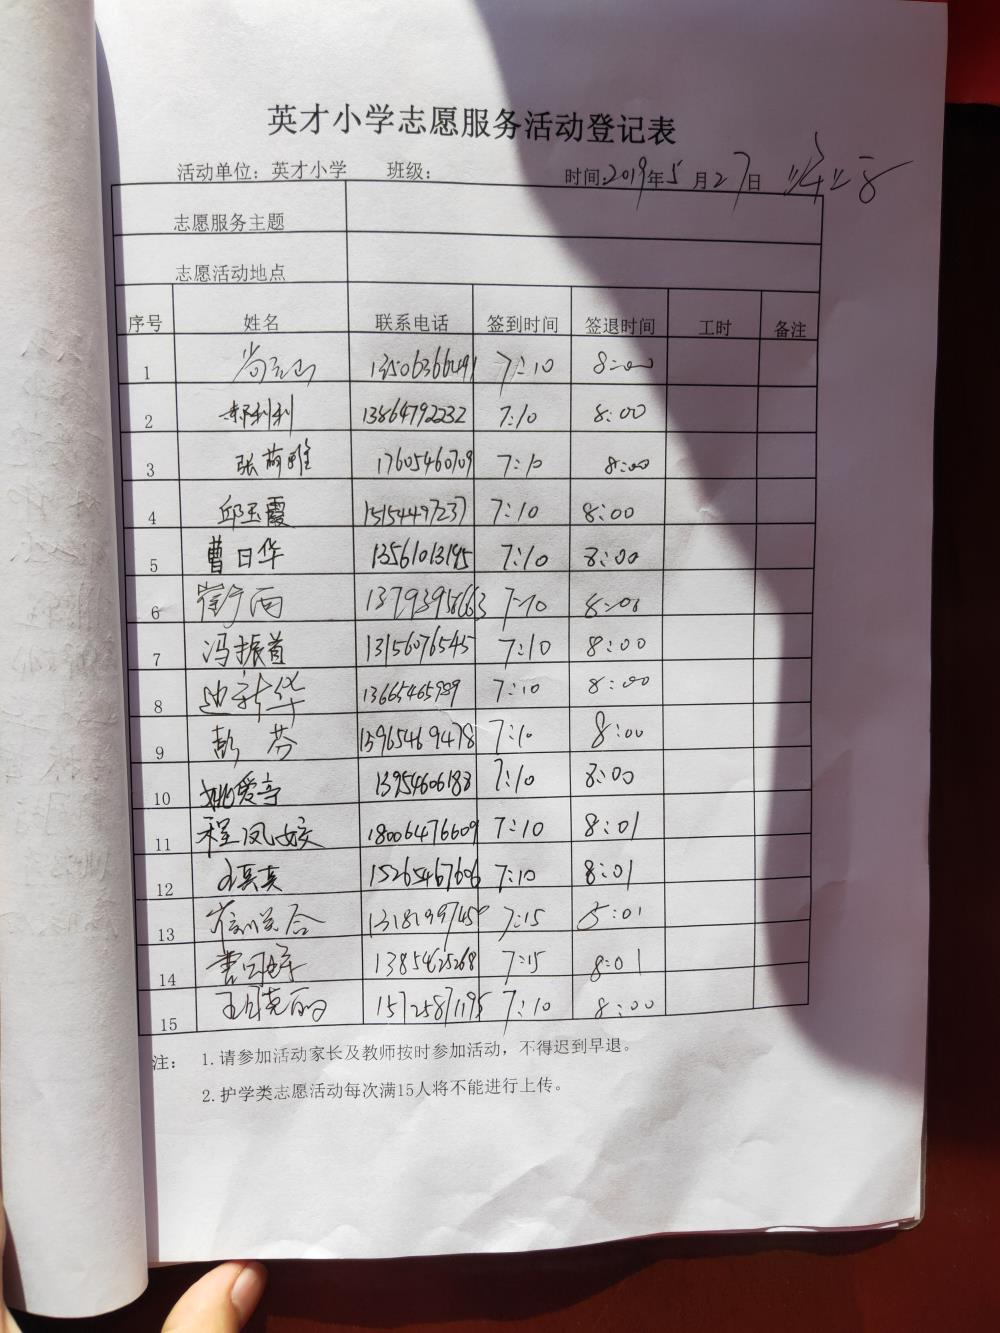 英才小学志愿服务活动登记表
活动单位：英才小学 班级： 时间:2019年5月27日
志愿服务主题
志愿活动地点
序号 姓名 联系电话 签到时间 签退时间 工时 备注
1 13506366249 7:10 8:00
2 郝利利 13864792232 7:10 8:00
3 张 雅 17605460709 7:10 8:00
4 邱玉霞 15154497237 7:10 8:00
5 曹日华 13561013195 7:10 8:00
6 13793958663 7:10 8:00
7 冯振首 13156076545 7:10 8:00
8 新华 13665465989 7:10 8:00
9 彭芬 13965469478 7:10 8:00
10 姚爱亭 13954606188 7:10 8:00
11 程凤姣 18006476609 7:10 8:01
12 15265467606 7:10 8:01
13 7:15 8:01
14 13854625268 7:15 8:01
15 15725871195 7:10 8:00
注： 1.请参加活动家长及教师按时参加活动，不得迟到早退。
2.护学类志愿活动每次满15人将不能进行上传。